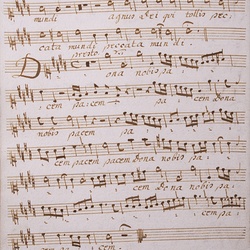 mundi agnus Dei qui tollis pec
cata mundi peccata mundi.
presto
Dona nobis pa
cem pacem pa
nobis pacem pa
cem pacem pacem Dona nobis pa
cem Dona nobis
pacem pa cem pa
cem.